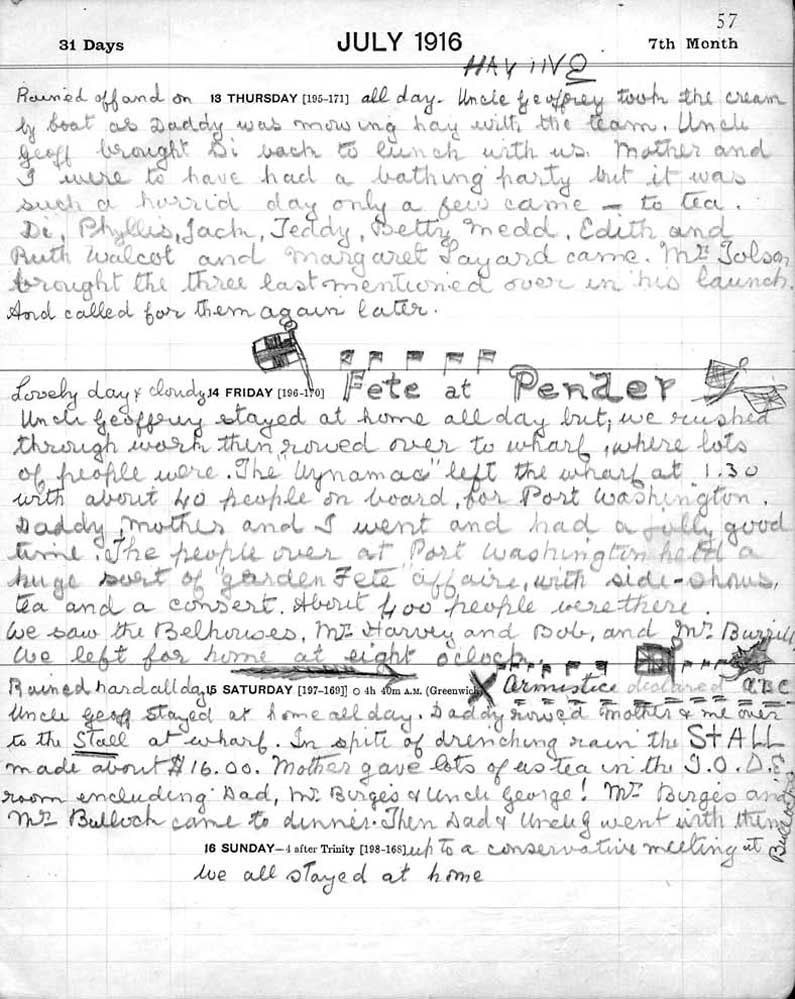 57
31 Days JULY 1916 7th Month
HAYING
Rained off and on 13 THURSDAY [195-171] all day. Uncle Geoffrey took the cream
by boat as Daddy was mowing hay with the team. Uncle
Geoff brought Di back to lunch with us. Mother and
I were to have had a bathing party but it was
such a horrid day only a few came - to tea.
Di, Phyllis, Jack, Teddy, Betty Medd, Edith and
Ruth Walcot and Margaret Layard came. Mr. Tolson
brought the three last mentioned over in his launch.
And called for them again later.
Lovely day & cloudy 14 FRIDAY [196-170] Fete at Pender
Uncle Geoffrey stayed at home all day but, we rushed
through work then rowed over to wharf, where lots
of people were. The "Aynamac" left the wharf at 1.30
with about 40 people on board, for Port Washington.
Daddy, Mother and I went and had a jolly good
time. The people over at Port Washington held a
huge sort of "garden Fete" affaire, with side-shows,
tea and a consert. About 400 people were there.
We saw the Belhouses, Mr. Harvey and Bob, and Mr. Burrill
We left for home at eight o'clock
Rained hard all day 15 SATURDAY [197-169] O 4h 40m A.M. (Greenwich) X Armistice declared A.B.C.
Uncle Geoff stayed at home all day. Daddy rowed Mother & me over
to the Stall at wharf. In spite of drenching rain the STALL
made about $16.00. Mother gave lots of us tea in the I.O.D.E.
room encluding Dad, Mr. Birges & Uncle George! Mr. Birges and
Mr. Bulloch came to dinner. Then Dad & Uncle G went with them
16 SUNDAY—4 after Trinity [198-168] up to a conservative meeting at Bullochs
We all stayed at home